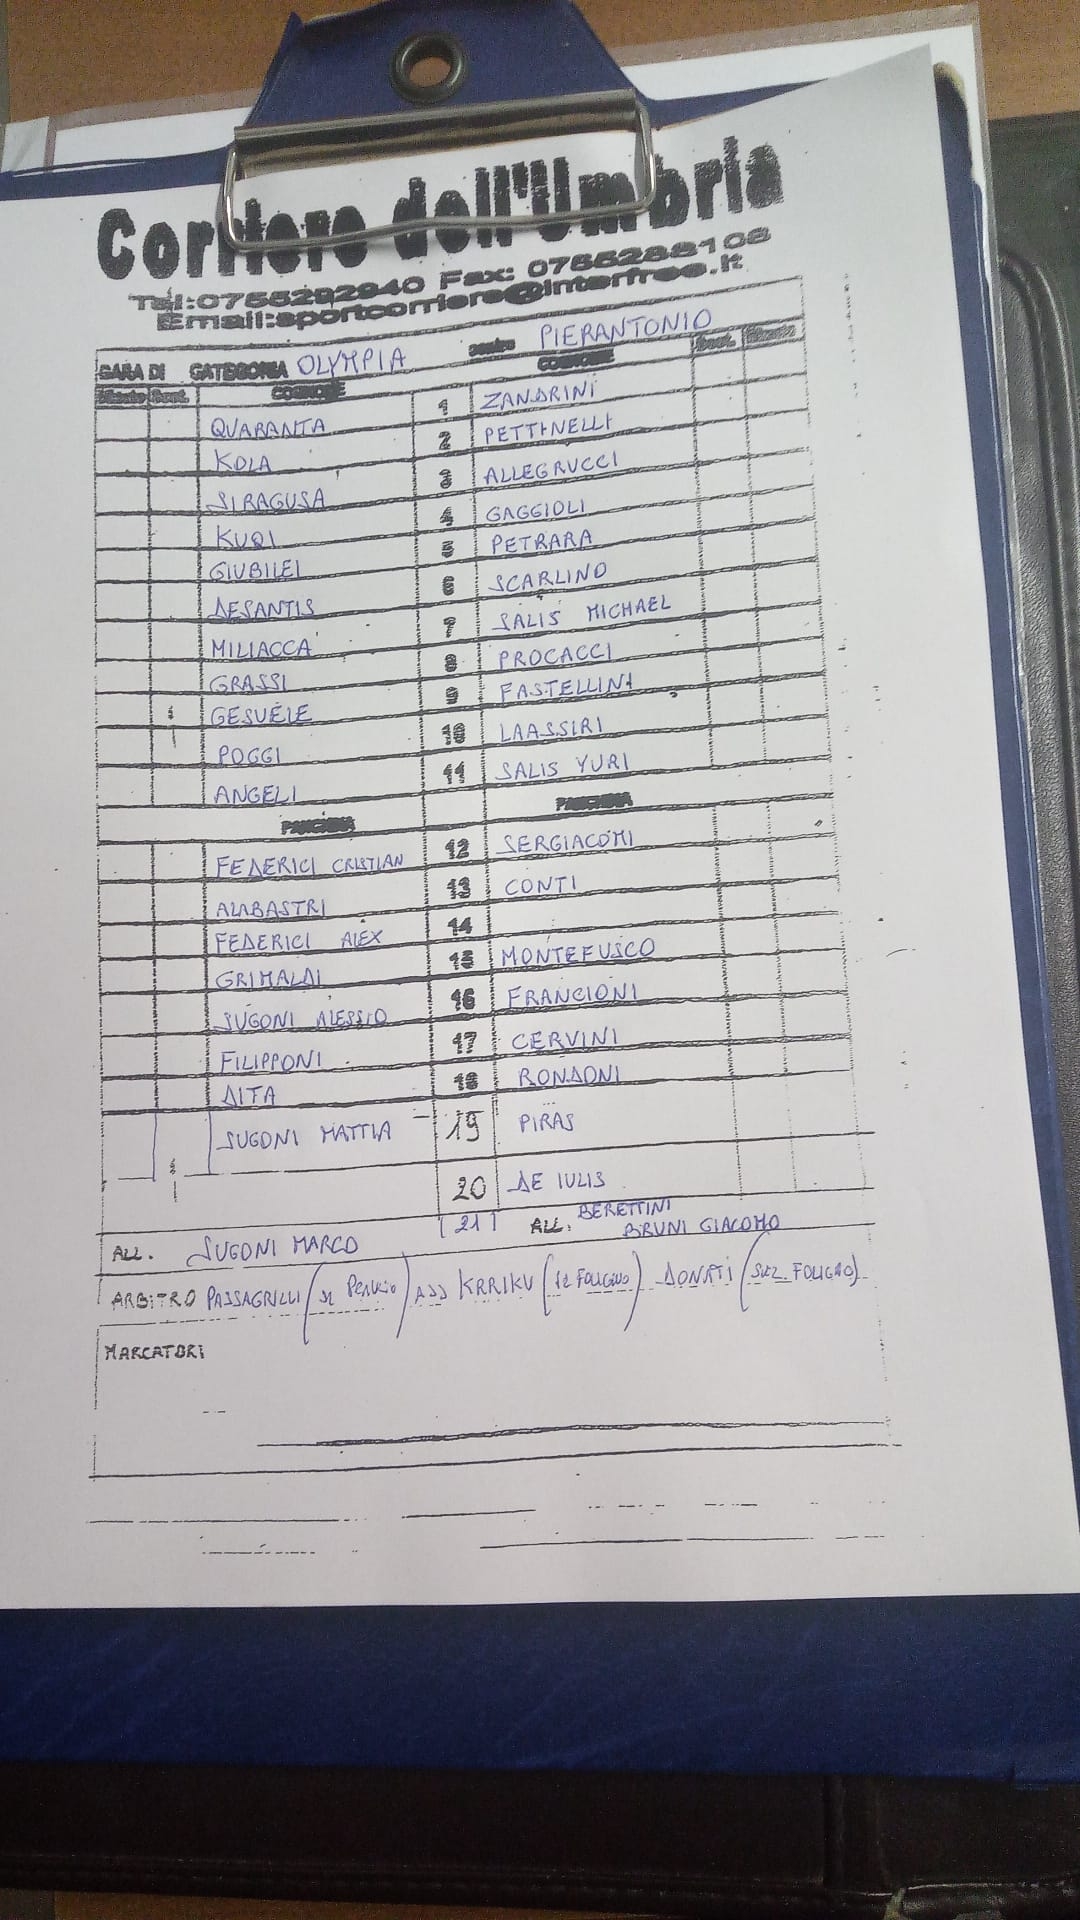 Corriere dell'Umbria
Tel:0755292940 Fax: 0755288108
Email:sportcorriere@interfree.it
GARA DI CATEGORIA OLYMPIA contro PIERANTONIO
COGNOME COGNOME
QUARANTA 1 ZANDRINI
KOLA 2 PETTINELLI
SIRAGUSA 3 ALLEGRUCCI
KUQI 4 GAGGIOLI
GIUBILEI 5 PETRARA
DESANTIS 6 SCARLINO
MILIACCA 7 SALIS MICHAEL
GRASSI 8 PROCACCI
GESUELE 9 FASTELLINI
POGGI 10 LAASSIRI
ANGELI 11 SALIS YURI
PANCHINA PANCHINA
FEDERICI CRISTIAN 12 SERGIACOMI
ALABASTRI 13 CONTI
FEDERICI ALEX 14
GRIMALDI 15 MONTEFUSCO
SUGONI ALESSIO 16 FRANCIONI
FILIPPONI 17 CERVINI
DITA 18 RONDONI
SUGONI MATTIA 19 PIRAS
20 DE IULIS
21 BERETTINI
ALL. SUGONI MARCO ALL. BRUNI GIACOMO
ARBITRO PASSAGRILLI ASS KRRIKU DONATI (SEZ. FOLIGNO)
MARCATORI